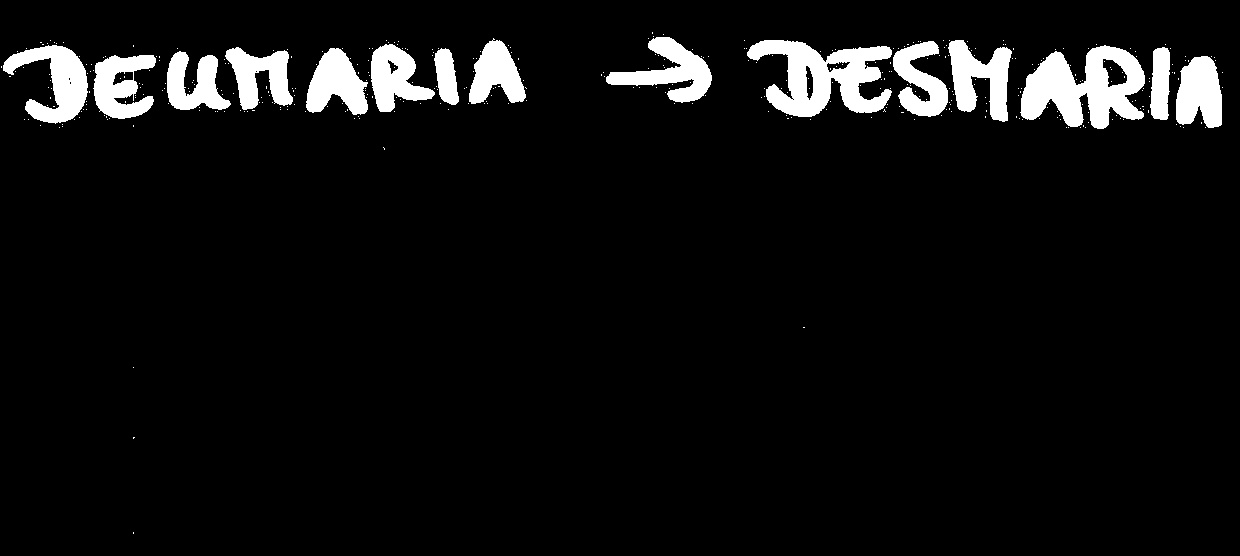 DEUMARIA → DESMARIA